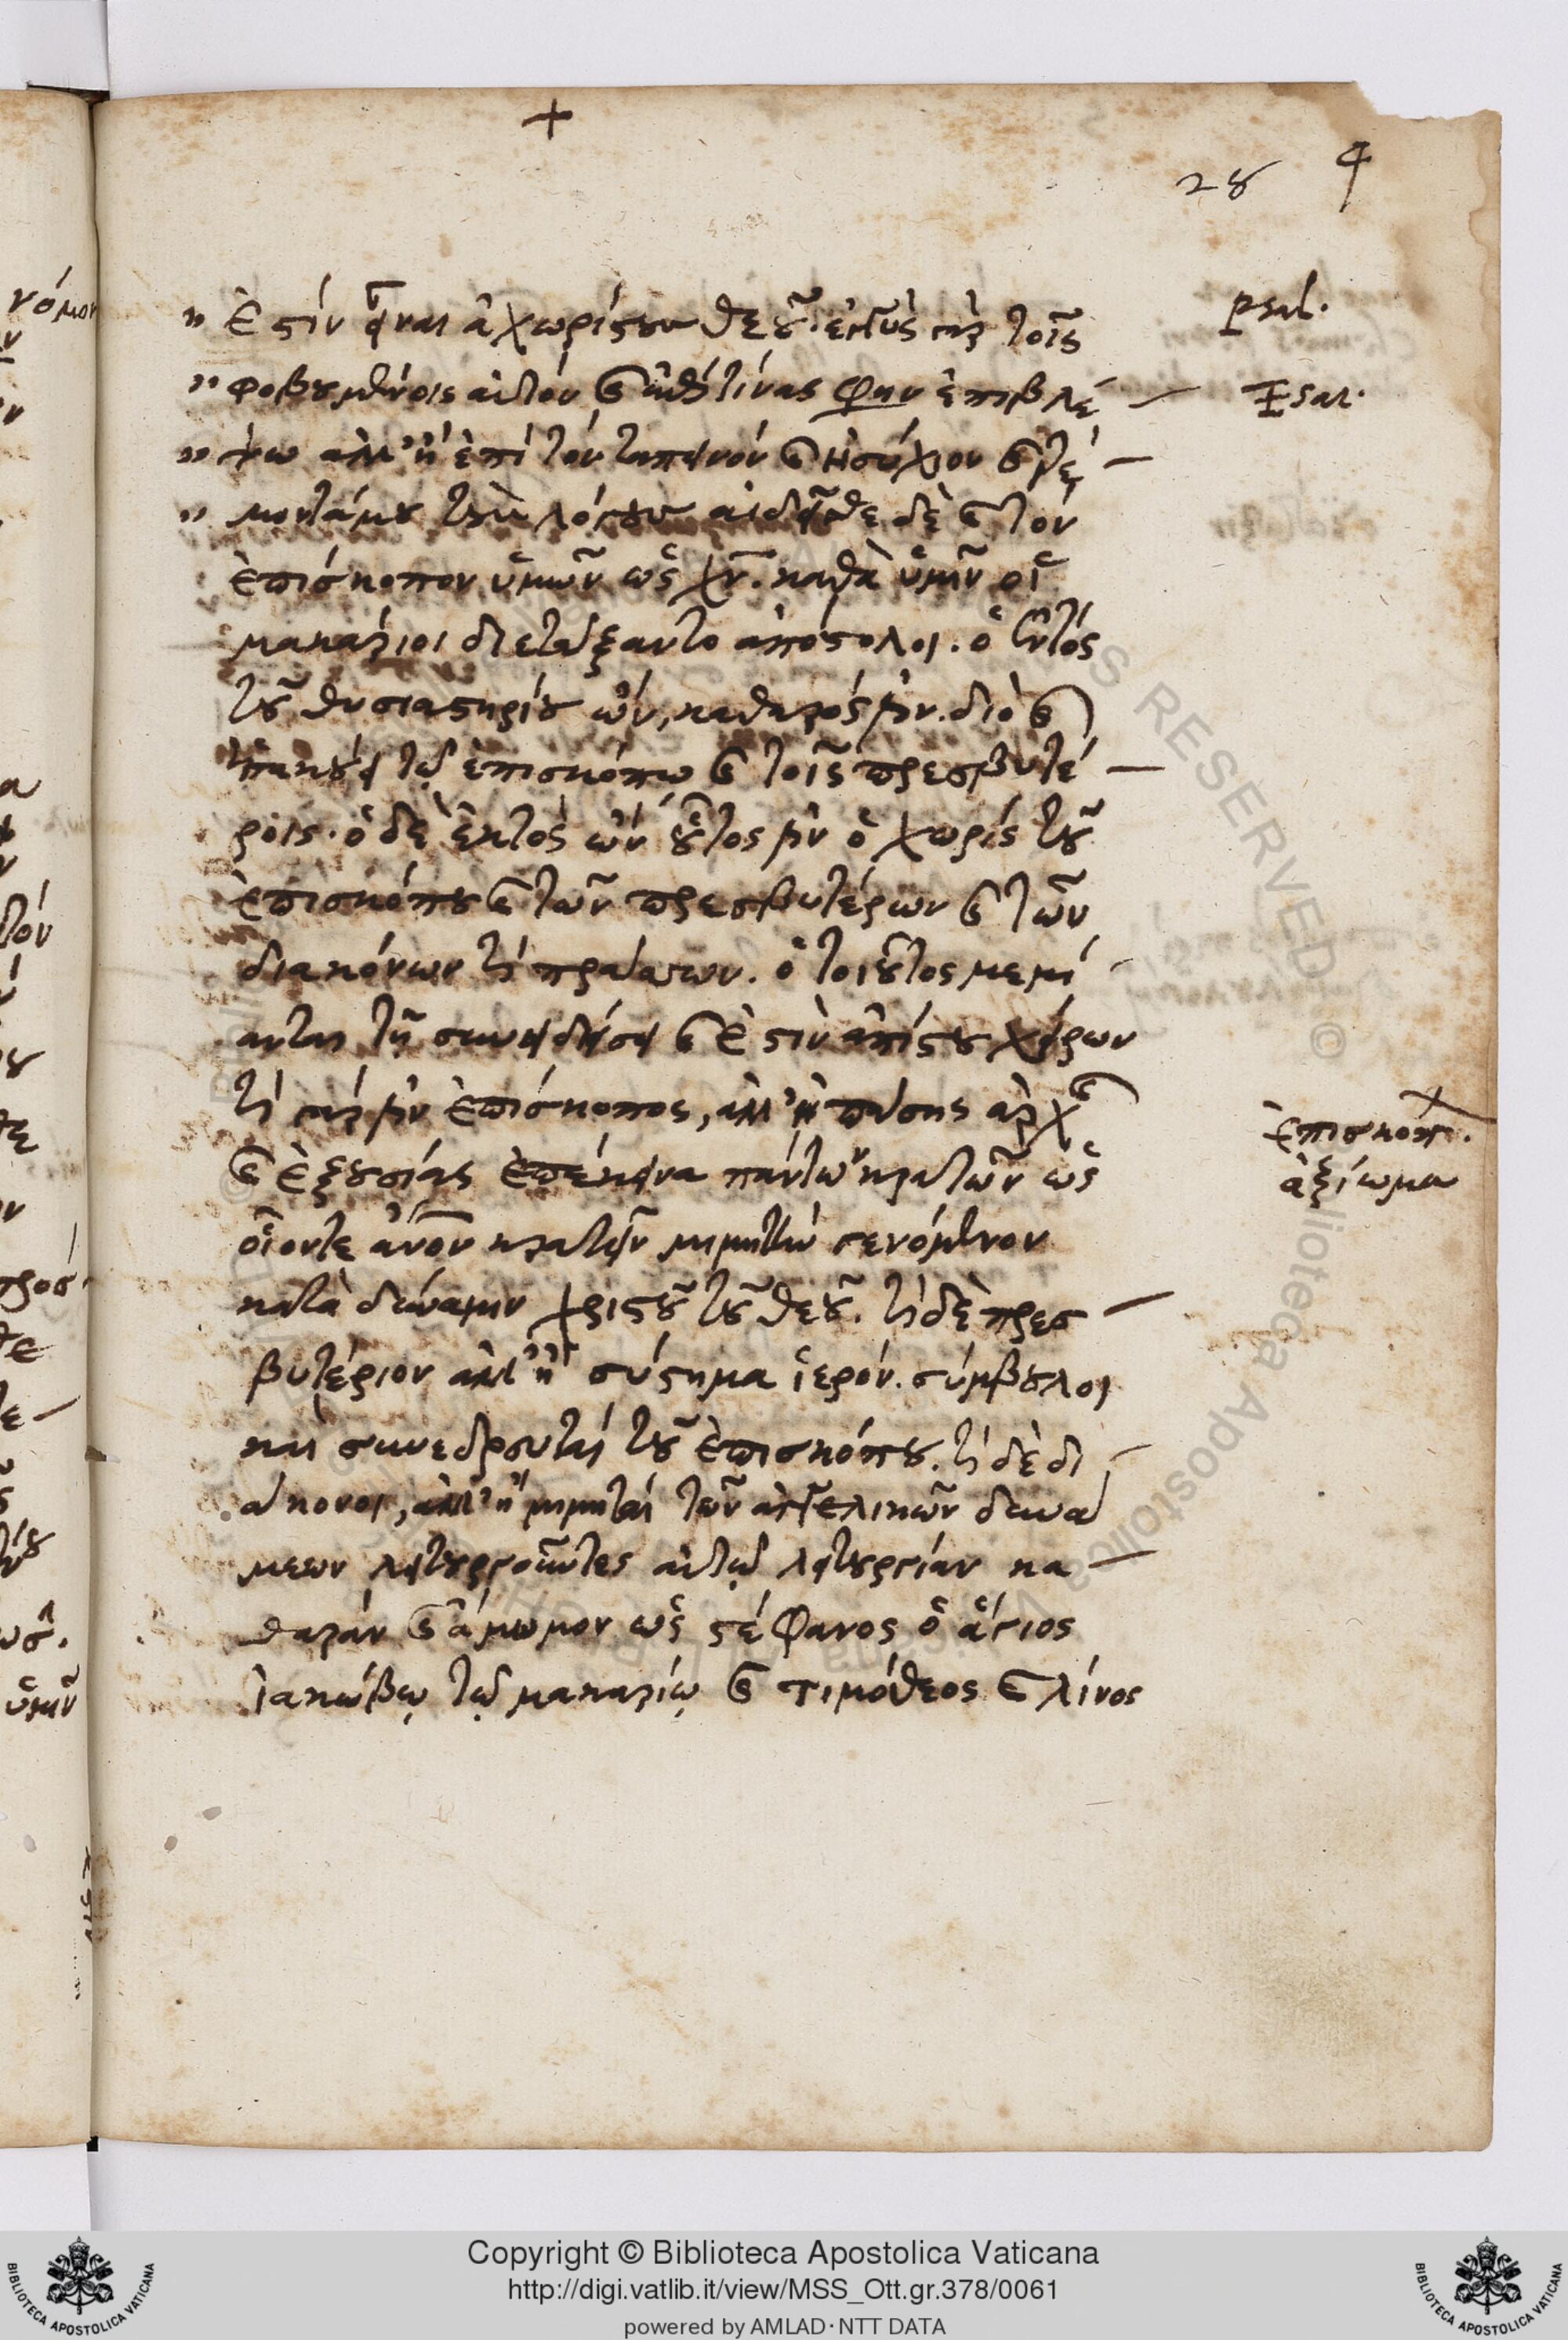 +
28 9
" ἐστίν εἶναι ἀχωρίστου θεοῦ. ἐγγὺς γὰρ τοῖς psal.
" φοβουμένοις αὐτόν. καὶ ἐπὶ τίνας φην ἐπιβλέ- Esai.
" ψω ἀλλ' ἢ ἐπὶ τὸν ταπεινόν καὶ ἡσύχιον καὶ τρέ-
" μοντά μου τοὺς λόγους αἰδεῖσθε δὲ καὶ τὸν
ἐπίσκοπον ὑμῶν ὡς χν. καθὰ ὑμῖν οἱ
μακάριοι διετάξαντο ἀπόστολοι. ὁ ἐντός
τοῦ θυσιαστηρίου ὤν, καθαρός ἐστιν. διὸ καὶ
ὑπακούει τῷ ἐπισκόπῳ καὶ τοῖς πρεσβυτέ-
ροις. ὁ δὲ ἐκτὸς ὢν οὗτος ἐστιν ὁ χωρίς τοῦ
ἐπισκόπου καὶ τῶν πρεσβυτέρων καὶ τῶν
διακόνων τί πράσσων. ὁ τοιοῦτος μεμί-
ανται τῇ συνειδήσει καὶ ἐστὶν ἀπίστου χείρων
τί γάρ ἐστιν ἐπίσκοπος, ἀλλ' ἢ πάσης ἀρχῆς
καὶ ἐξουσίας ἐπέκεινα πάντων κρατῶν ὡς ἐπισκοπ.
οἷόν τε ἀνον κρατεῖν μιμητὴν γενόμενον ἀξίωμα
κατὰ δύναμιν χριστοῦ τοῦ θεοῦ. τί δὲ πρεσ-
βυτέριον ἀλλ' ἢ σύστημα ἱερόν. σύμβουλοι
καὶ συνεδρευταὶ τοῦ ἐπισκόπου. τί δὲ δι-
άκονοι, ἀλλ' ἢ μιμηταὶ τῶν ἀγγελικῶν δυνά
μεων λειτουργοῦντες αὐτῷ λειτουργίαν κα-
θαράν καὶ ἄμωμον ὡς στέφανος ὁ ἅγιος
ἰακώβῳ τῷ μακαρίῳ καὶ τιμόθεος καὶ λίνος
Copyright © Biblioteca Apostolica Vaticana
http://digi.vatlib.it/view/MSS_Ott.gr.378/0061
powered by AMLAD·NTT DATA